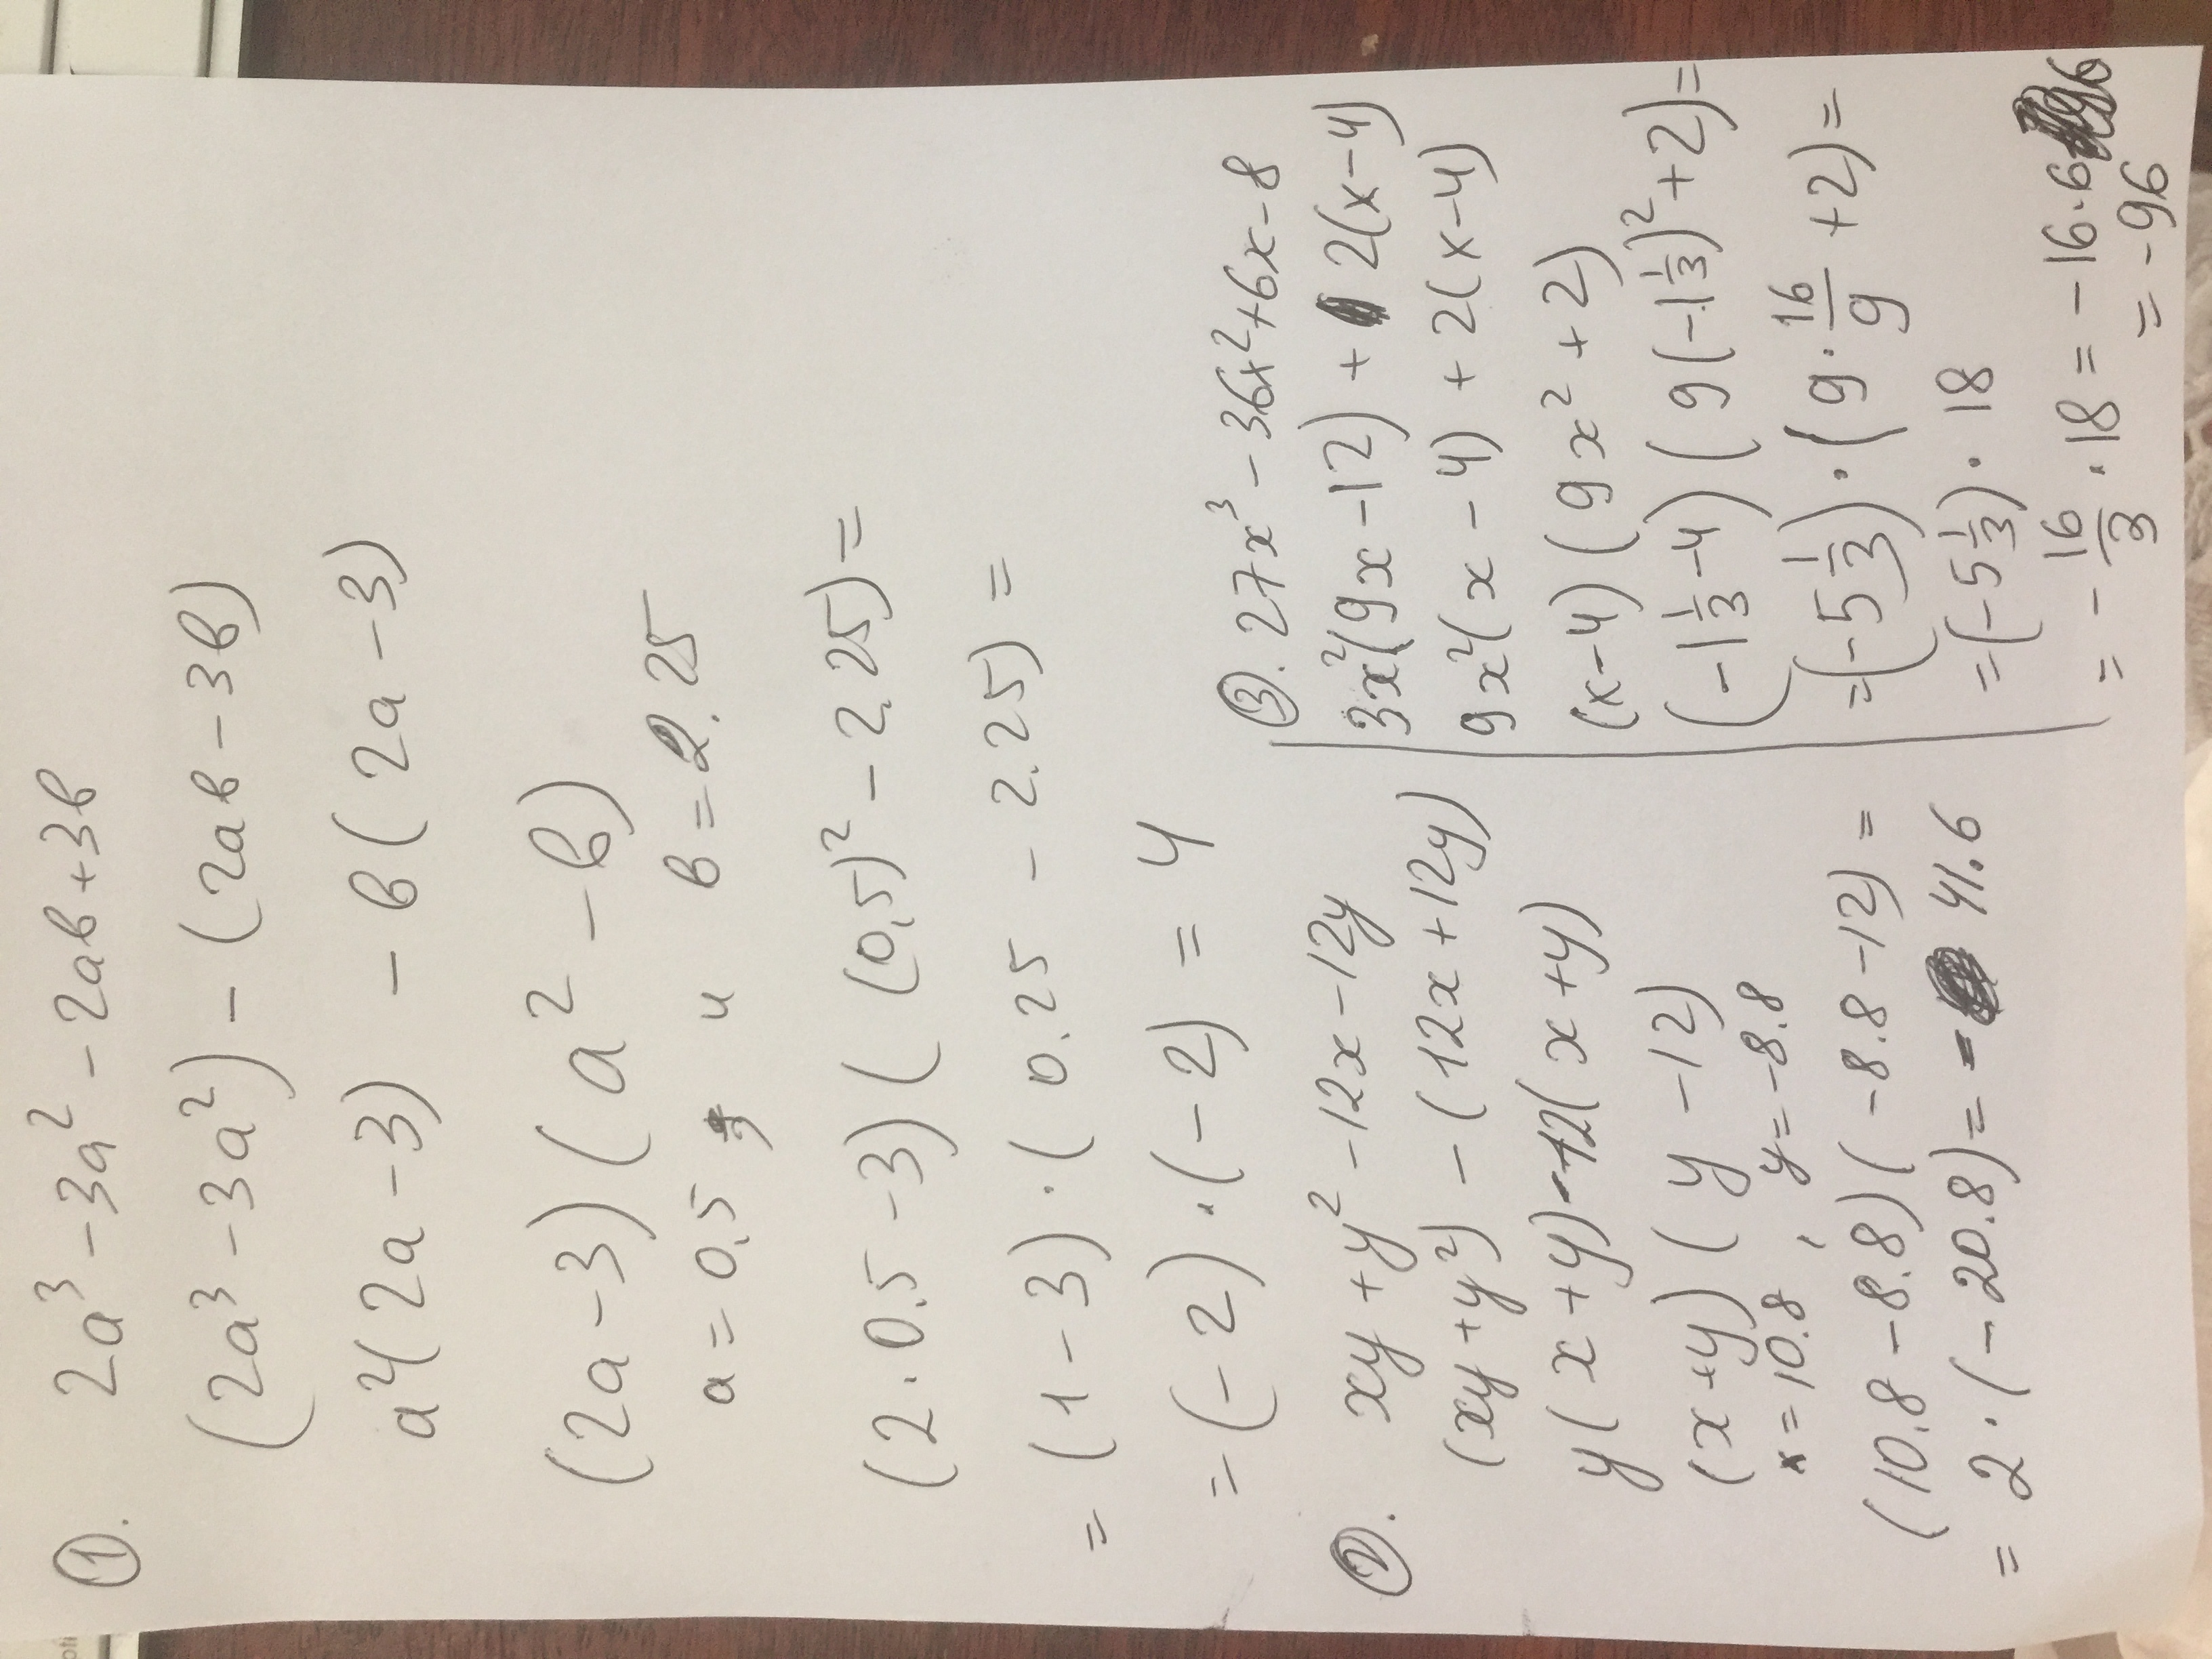 ①. 2a³ - 3a² - 2ab + 3b
(2a³ - 3a²) - (2ab - 3b)
a²(2a - 3) - b(2a - 3)
(2a - 3)(a² - b)
a = 0.5, и b = 2.25
(2 · 0.5 - 3)((0.5)² - 2.25) =
= (1 - 3) · (0.25 - 2.25) =
= (-2) · (-2) = 4
②. xy + y² - 12x - 12y
(xy + y²) - (12x + 12y)
y(x + y) - 12(x + y)
(x + y)(y - 12)
x = 10.8, y = -8.8
(10.8 - 8.8)(-8.8 - 12) =
= 2 · (-20.8) = - 41.6
③. 27x³ - 36x² + 6x - 8
3x²(9x - 12) + 2(x - 4)
9x²(x - 4) + 2(x - 4)
(x - 4)(9x² + 2)
(-1 1/3 - 4)(9(-1 1/3)² + 2) =
= (-5 1/3) · (9 · 16/9 + 2) =
= (-5 1/3) · 18
= - 16/3 · 18 = - 16 · 6
= - 96